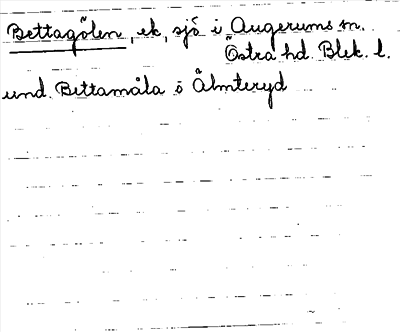 Bettagölen, ek, sjö i Augerums sn.
Östra hd. Blek. l.
und. Bettamåla ö Ålmteryd